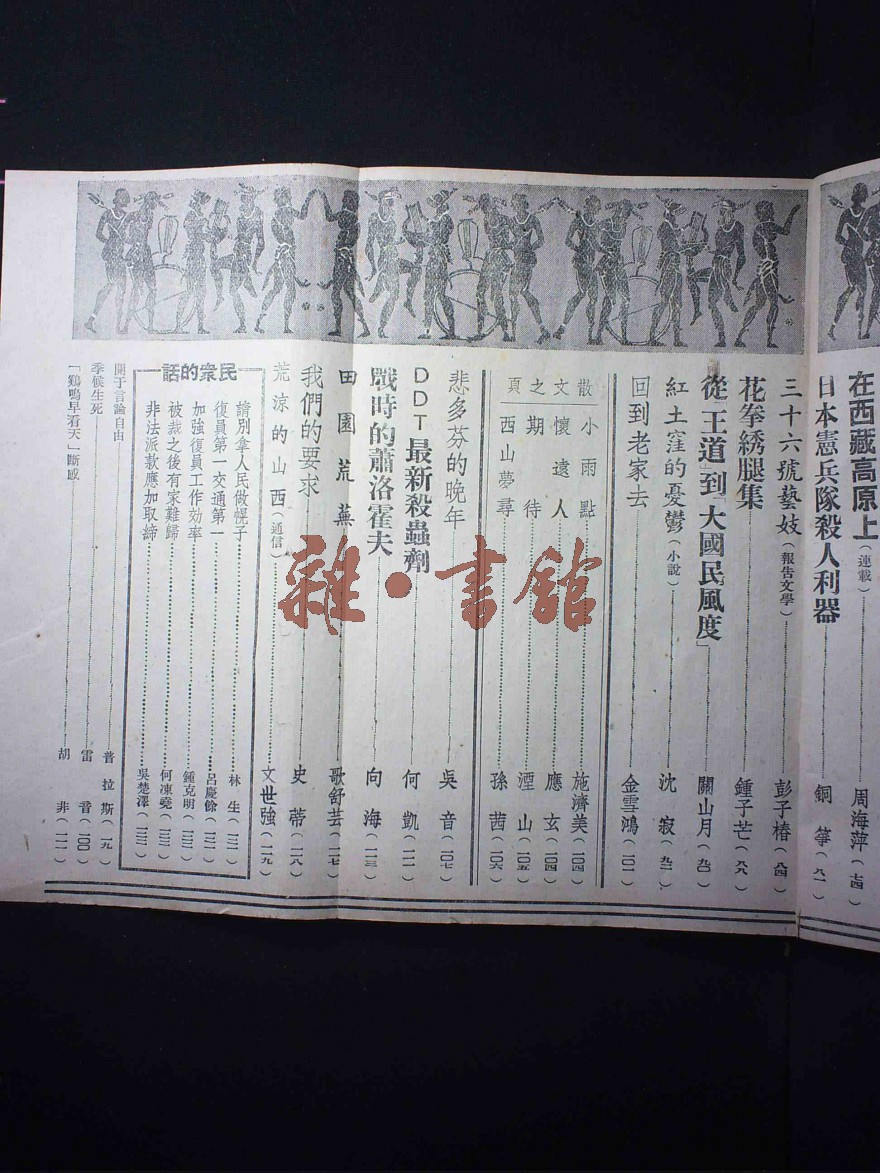 在西藏高原上(連載)周海萍(七四)
日本憲兵隊殺人利器 銅箏(八一)
三十六號藝妓(報告文學)彭子椿(八四)
花拳綉腿集 鍾子芒(八八)
從「王道」到「大國民風度」關山月(九〇)
紅土窪的憂鬱(小說)沈寂(九二)
回到老家去 金雪鴻(一〇一)
散文之頁
小雨點 施濟美(一〇四)
懷遠人 應玄(一〇四)
期待 湮山(一〇五)
西山夢尋 孫茜(一〇六)
悲多芬的晚年 吳音(一〇七)
DDT最新殺蟲劑 何凱(一一一)
戰時的蕭洛霍夫 向海(一一三)
田園荒蕪 歌舒芸(一一七)
我們的要求 史蒂(一一八)
荒涼的山西(通信)文世強(一一九)
民衆的話
請別拿人民做幌子 林生(一三一)
復員第一交通第一 呂慶餘
加強復員工作効率 鍾克明
被裁之後有家難歸 何凍堯
非法派款應加取締 吳楚澤
關于言論自由 普拉斯(一九)
季候生死 雷音(一〇〇)
「鷄鳴早看天」斷感 胡非
雜·書館